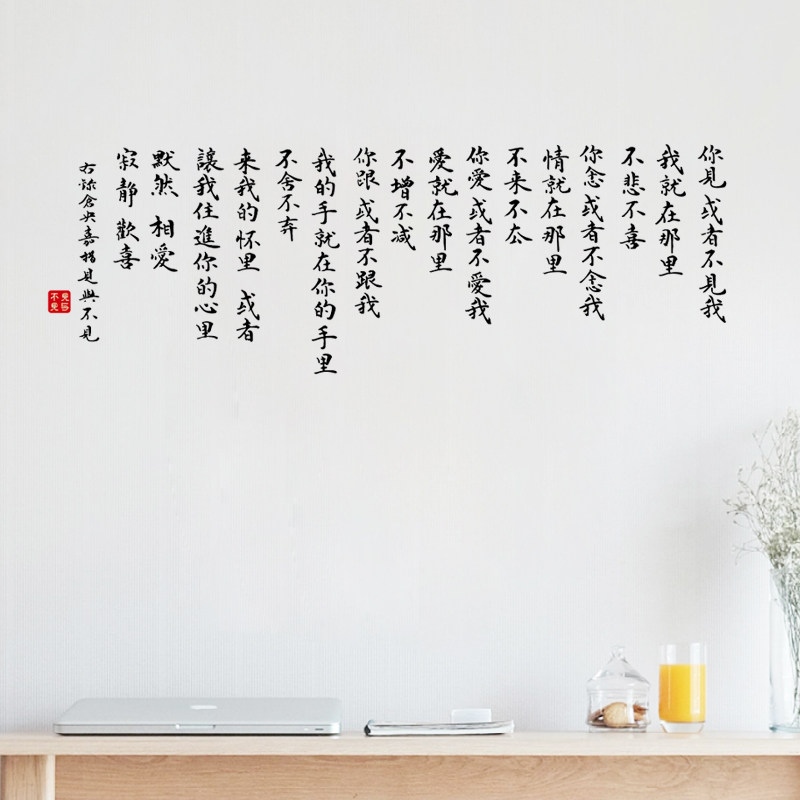 你見或者不見我
我就在那里
不悲不喜
你念或者不念我
情就在那里
不来不去
你愛或者不愛我
愛就在那里
不增不减
你跟或者不跟我
我的手就在你的手里
不舍不弃
来我的怀里 或者
讓我住進你的心里
默然 相愛
寂静歡喜
右錄倉央嘉措見與不見
見與不見